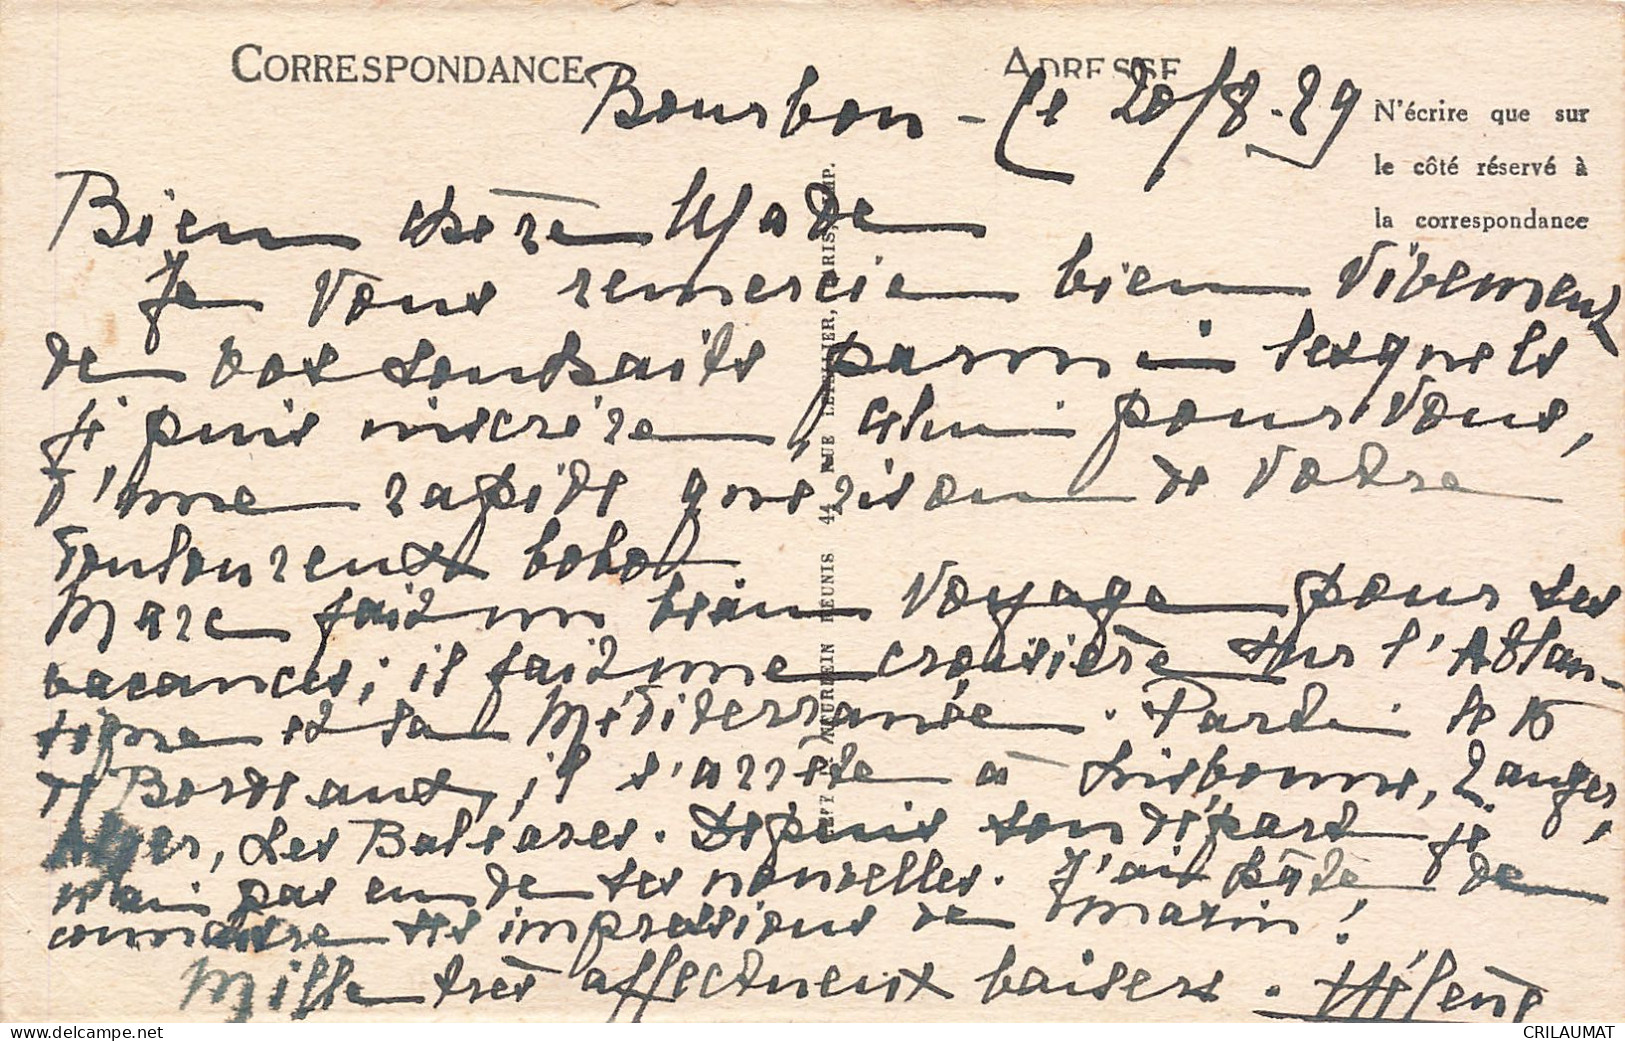 CORRESPONDANCE
ADRESSE
Bourbon - le 20/8-29
N'écrire que sur
le côté réservé à
la correspondance
Bien chère Made
Je vous remercie bien vivement
de vos souhaits parmi lesquels
je puis inscrire, celui pour vous,
d'une rapide guérison de votre
douloureux bobo!
Marc fait un beau voyage pour ses
vacances; il fait une croisière sur l'Atlan-
tique et la Méditerranée. Parti le 15
de Bordeaux, il s'arrête à Lisbonne, Tanger,
Alger, Les Baléares. Depuis son départ je
n'ai pas eu de ses nouvelles. J'ai hâte de
connaître ses impressions de marin!
Mille très affectueux baisers. Hélène
NEURDEIN RÉUNIS 44, RUE LETELLIER, PARIS, IMP.
CRILAUMAT